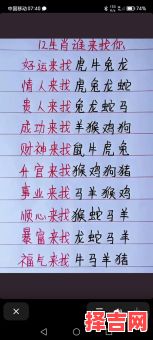 中国移动 07:40
12生肖谁来找你
好运来找虎牛兔龙
情人来找虎兔龙蛇
贵人来找兔龙蛇马
成功来找羊猴鸡狗
财神来找鼠牛虎兔
升官来找猴鸡狗猪
事业来找马羊猴鸡
顺心来找猴蛇马羊
暴富来找龙蛇马羊
福气来找牛马羊猪
择吉网
zejiwang.com